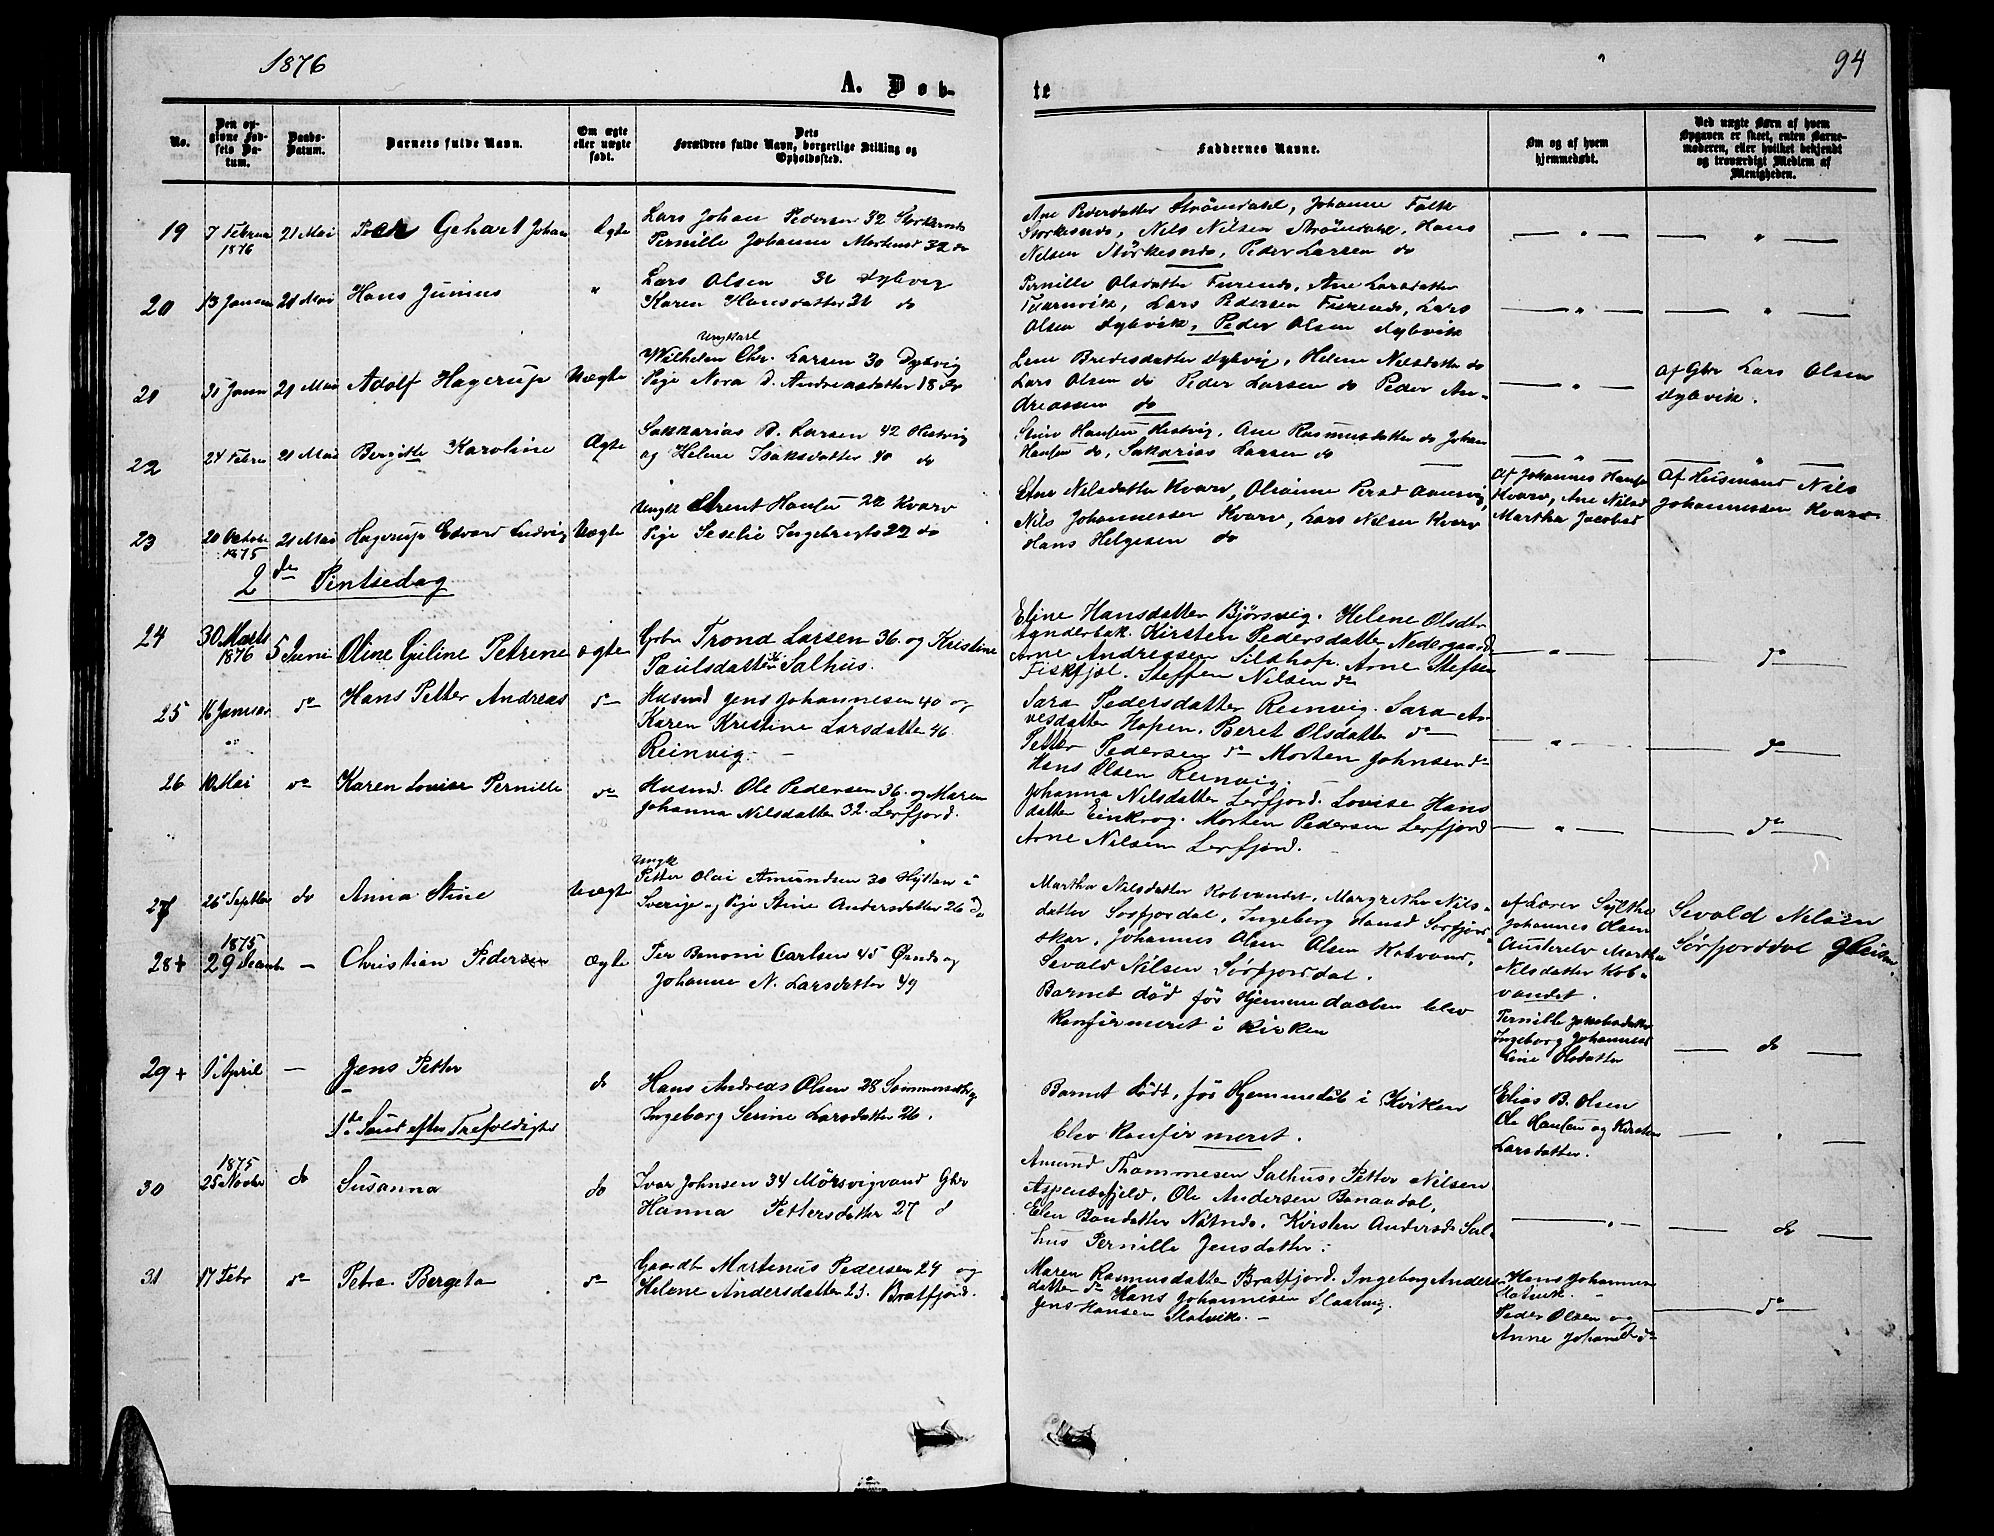 1876
94
A. Døb-
te
No.
Den op-
givne Fød-
sels Da-
tum.
Daabs-
Datum.
Barnets fulde Navn.
Om ægte
eller uægte
født.
Dets
Forældres fulde Navn, borgerlige Stilling og
Opholdssted.
Faddernes Navne.
Om og af hvem
hjemmedøbt.
Ved uægte Børn af hvem
Opgaven er skeet, enten Barne-
moderen, eller hvilket bekjendt
og troværdigt Medlem af
Menigheden.
19 7 Februar 1876 21 Mai Peder Gehart Johan Ægte
Lars Johan Pedersen 32
Pernille Johanne 32 do
Ane Pedersdatter Strömdahl, Johanne Falk
Storkesnds, Nils Nilsen Strömdahl, Hans
Nilsen Störkesnds, Peder Larsen do
20 13 Januar 21 Mai Hans Junius "
Lars Olsen 31 Dybvig
Karen Hansdatter 31 do
Pernille Olsdatter Furends, Ane Larsdatter
Tvarnvik, Lars Pedersen Furends, Lars
Olsen Dybvik, Peder Olsen Dybvik
21 31 Janu 21 Mai Adolf Hagerup Uægte
Ungkarl
Wilhelm Chr. Larsen 30 Dybvig
Pige Nora D. Andreasdatter 18 do
Lene Bredesdatter Dybvig, Helene Nilsdatter do
Lars Olsen do Peder Larsen do Peder An-
dreassen do
Af Gbr Lars Olsen
Dybvik.
22 24 Febru 21 Mai Bergitte Karoline Ægte
Sakkarias B. Larsen 42 Hestvig
og Helene Isaksdatter 40 do
Stine Hansen Hestvig, Ane Rasmusdatter do Johan
Hansen do, Sakarias Larsen do
23 20 Oktober 1875 21 Mai Hagerup Edvard Ludvig Uægte
Ungk Arent Hansen 22 Kvarv
Pige Seselie Ingebrigts 22 do
Nilsdatter Kvarv, Olianne
Nils Johannessen Kvarv, Lars Nilsen Kvarv
Hans Helgesen do
Af Johannes Hansen
Kvarv, Ane Nilsd
Martha Jacobsd
Af Husmand Nils
Johannessen Kvarv
2den Pintsedag
24 30 Marts 1876 5 Juni Oline Giline Petrine ægte
Gbr Trond Larsen 36. og Kristine
Paulsdatter Salhus.
Eline Hansdatter Bjørsvig. Helene Olsdtr
Tynderbak. Kirsten Pedersdatter Nedergaard
Arne Andreasen Sildhop. Arne Stefsen
Fiskfjel. Steffen Nilsen do
do
25 16 Januar do Hans Petter Andreas do
Husmd Jens Johannesen 40 og
Karen Kristine Larsdatter 46
Reinvig.
Sara Pedersdatter Reinvig. Sara Ar-
vesdatter Hopen. Beret Olsdatter do
Petter Pedersen do Morten Johnsen do
Hans Olsen Reinvig.
do
26 10 Mai do Karen Louise Pernille do
Husmd. Ole Pedersen 36. og Maren
Johanna Nilsdatter 32. Lerfjord.
Johanna Nilsdatter Lerfjord. Lovise Hans
datter Einkrog. Morten Pedersen Lerfjord
Arne Nilsen Lerfjord.
do
27 26 Septbr do Anna Stine Uægte
Ungk
Petter Olai Amundsen 30 Hyttan i
Sverige og Pige Stine Andersdatter 26 do
Martha Nilsdatter Kobvandet, Margrethe Nils-
datter Sørfjordal, Ingeborg Hansd Sørfjord-
skar, Johannes Olsen Olsen Kobvand,
Sevald Nilsen Sørfjorddal.
af Lærer Sylthe
Johannes Olsen
Austerelv Martha
Nilsdatter Kob-
vandet.
Sevald Nilsen
Sørfjorddal
28+ 1875 29 Decembr — Christian Pedersen ægte
Per Benoni Carlsen 45 Ørnds og
Johanne N. Larsdatter 49
Barnet död för Hjemme daaben blev
konfirmeret i Kirken
Pernille Jakobsdatter
Ingeborg Johannesd
Line Olsdatter
do
29+ 1 April — Jens Petter do
Hans Andreas Olsen 28 Sommerset og
Ingeborg Serine Larsdatter 26.
Barnet dödt, för Hjemmedåb i Kirken
blev konfirmeret.
Elias B. Olsen
Ole Hansen og Kirsten
Larsdatter.
1ste Sønd efter Trefoldighed
30 1875 25 Novbr do Susanna do
Ivar Johnsen 34 Mörsvigvand Gbr
Hanna Pettersdatter 27 d
Amund Thommesen Salhus, Petter Nilsen
Aspenesfjeld, Ole Andersen Bonaadal,
Elen Bondatter Nötnds, Kirsten Andersdr Sal-
hus Pernille Jensdatter
do
31 17 Febr do Petra Bergeta do
Gaardb Martinus Pedersen 24 og
Helene Andersdatter 23. Bratfjord.
Maren Rasmusdatter Bratfjord. Ingeborg Anders-
datter do Hans Johannesen Slaatvig.
Jens Hansen Slotvik. —
Hans Johannesen
Slotvik.
Peder Olsen og
Anne Johansd do
do